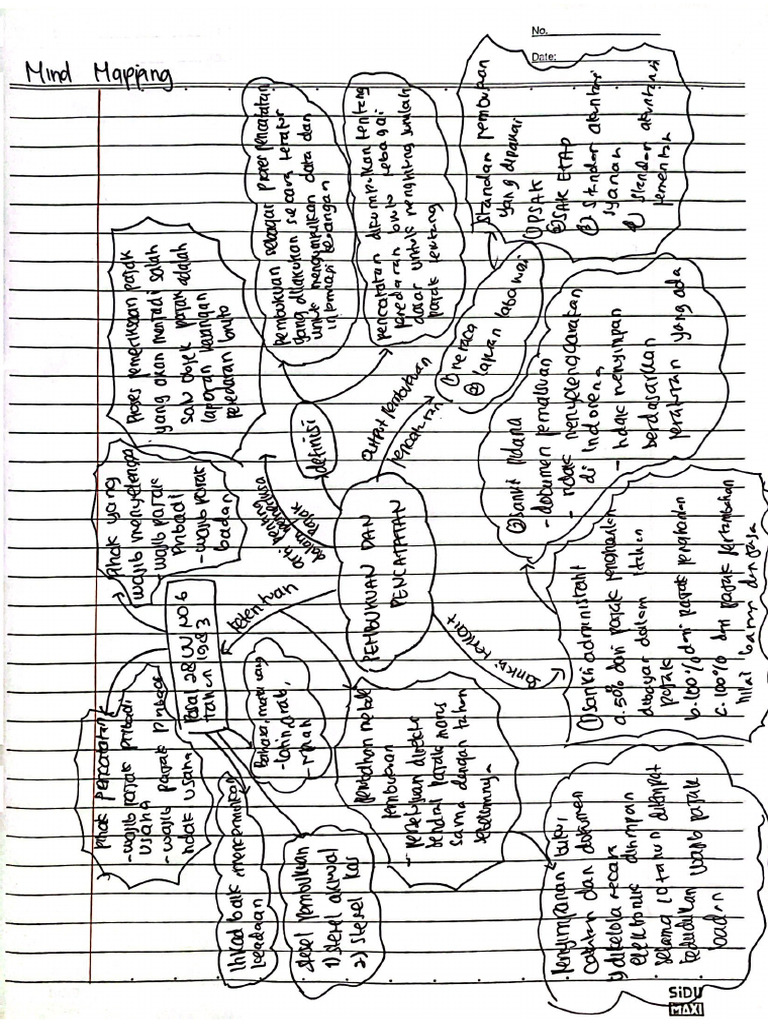 No.
Date:
Mind Mapping
PEMBUKUAN DAN
PENCATATAN
definisi
pembukuan sebagai proses pencatatan
yang dilakukan secara teratur
untuk mengumpulkan data dan
informasi keuangan
pencatatan dikumpulkan tentang
peredaran bruto sebagai
dasar untuk menghitung jumlah
pajak terutang
output pembukuan
pencatatan
① neraca
② laporan laba rugi
Standar pembukuan
yang dipakai
① PSAK
② SAK ETAP
③ Standar akuntansi
syariah
4 Standar akuntansi
pemerintah
arti penting
dalam pemeriksa
pajak
Proses pemeriksaan pajak
yang akan menjadi salah
satu objek pajak adalah
laporan keuangan
peredaran bruto
ketentuan
Pasal 28 UU NO 6
tahun 1983
pihak yang
wajib menyelengga
wajib pajak
pribadi
- wajib pajak
badan
pihak pencatatan
- wajib pajak pribadi
usaha
- wajib pajak pribadi
tidak usaha
Itikad baik mencerminkan
keadaan
bahasa, mata uang
- latin, arab,
- rupiah
stelsel pembukuan
1) stelsel akrual
2) stelsel kas
perubahan metode
pembukuan
- persetujuan direktur
jendral pajak harus
sama dengan tahun
sebelumnya
penyimpanan buku,
catatan dan dokumen
y dikelola secara
elektronik disimpan
selama 10 tahun ditempat
kedudukan wajib pajak
badan
sanksi terkait
① Sanksi administratif
a. 50% dari pajak penghasilan
dibayar dalam 1 tahun
pajak
b. 100% dari pajak penghasilan
c. 100% dari pajak pertambahan
nilai barang dan jasa
② Sanksi Pidana
- dokumen pemalsuan
- tidak menyelenggarakan
di Indonesia
- tidak menyimpan
berdasarkan
peraturan yang ada
SiDU
MAXI